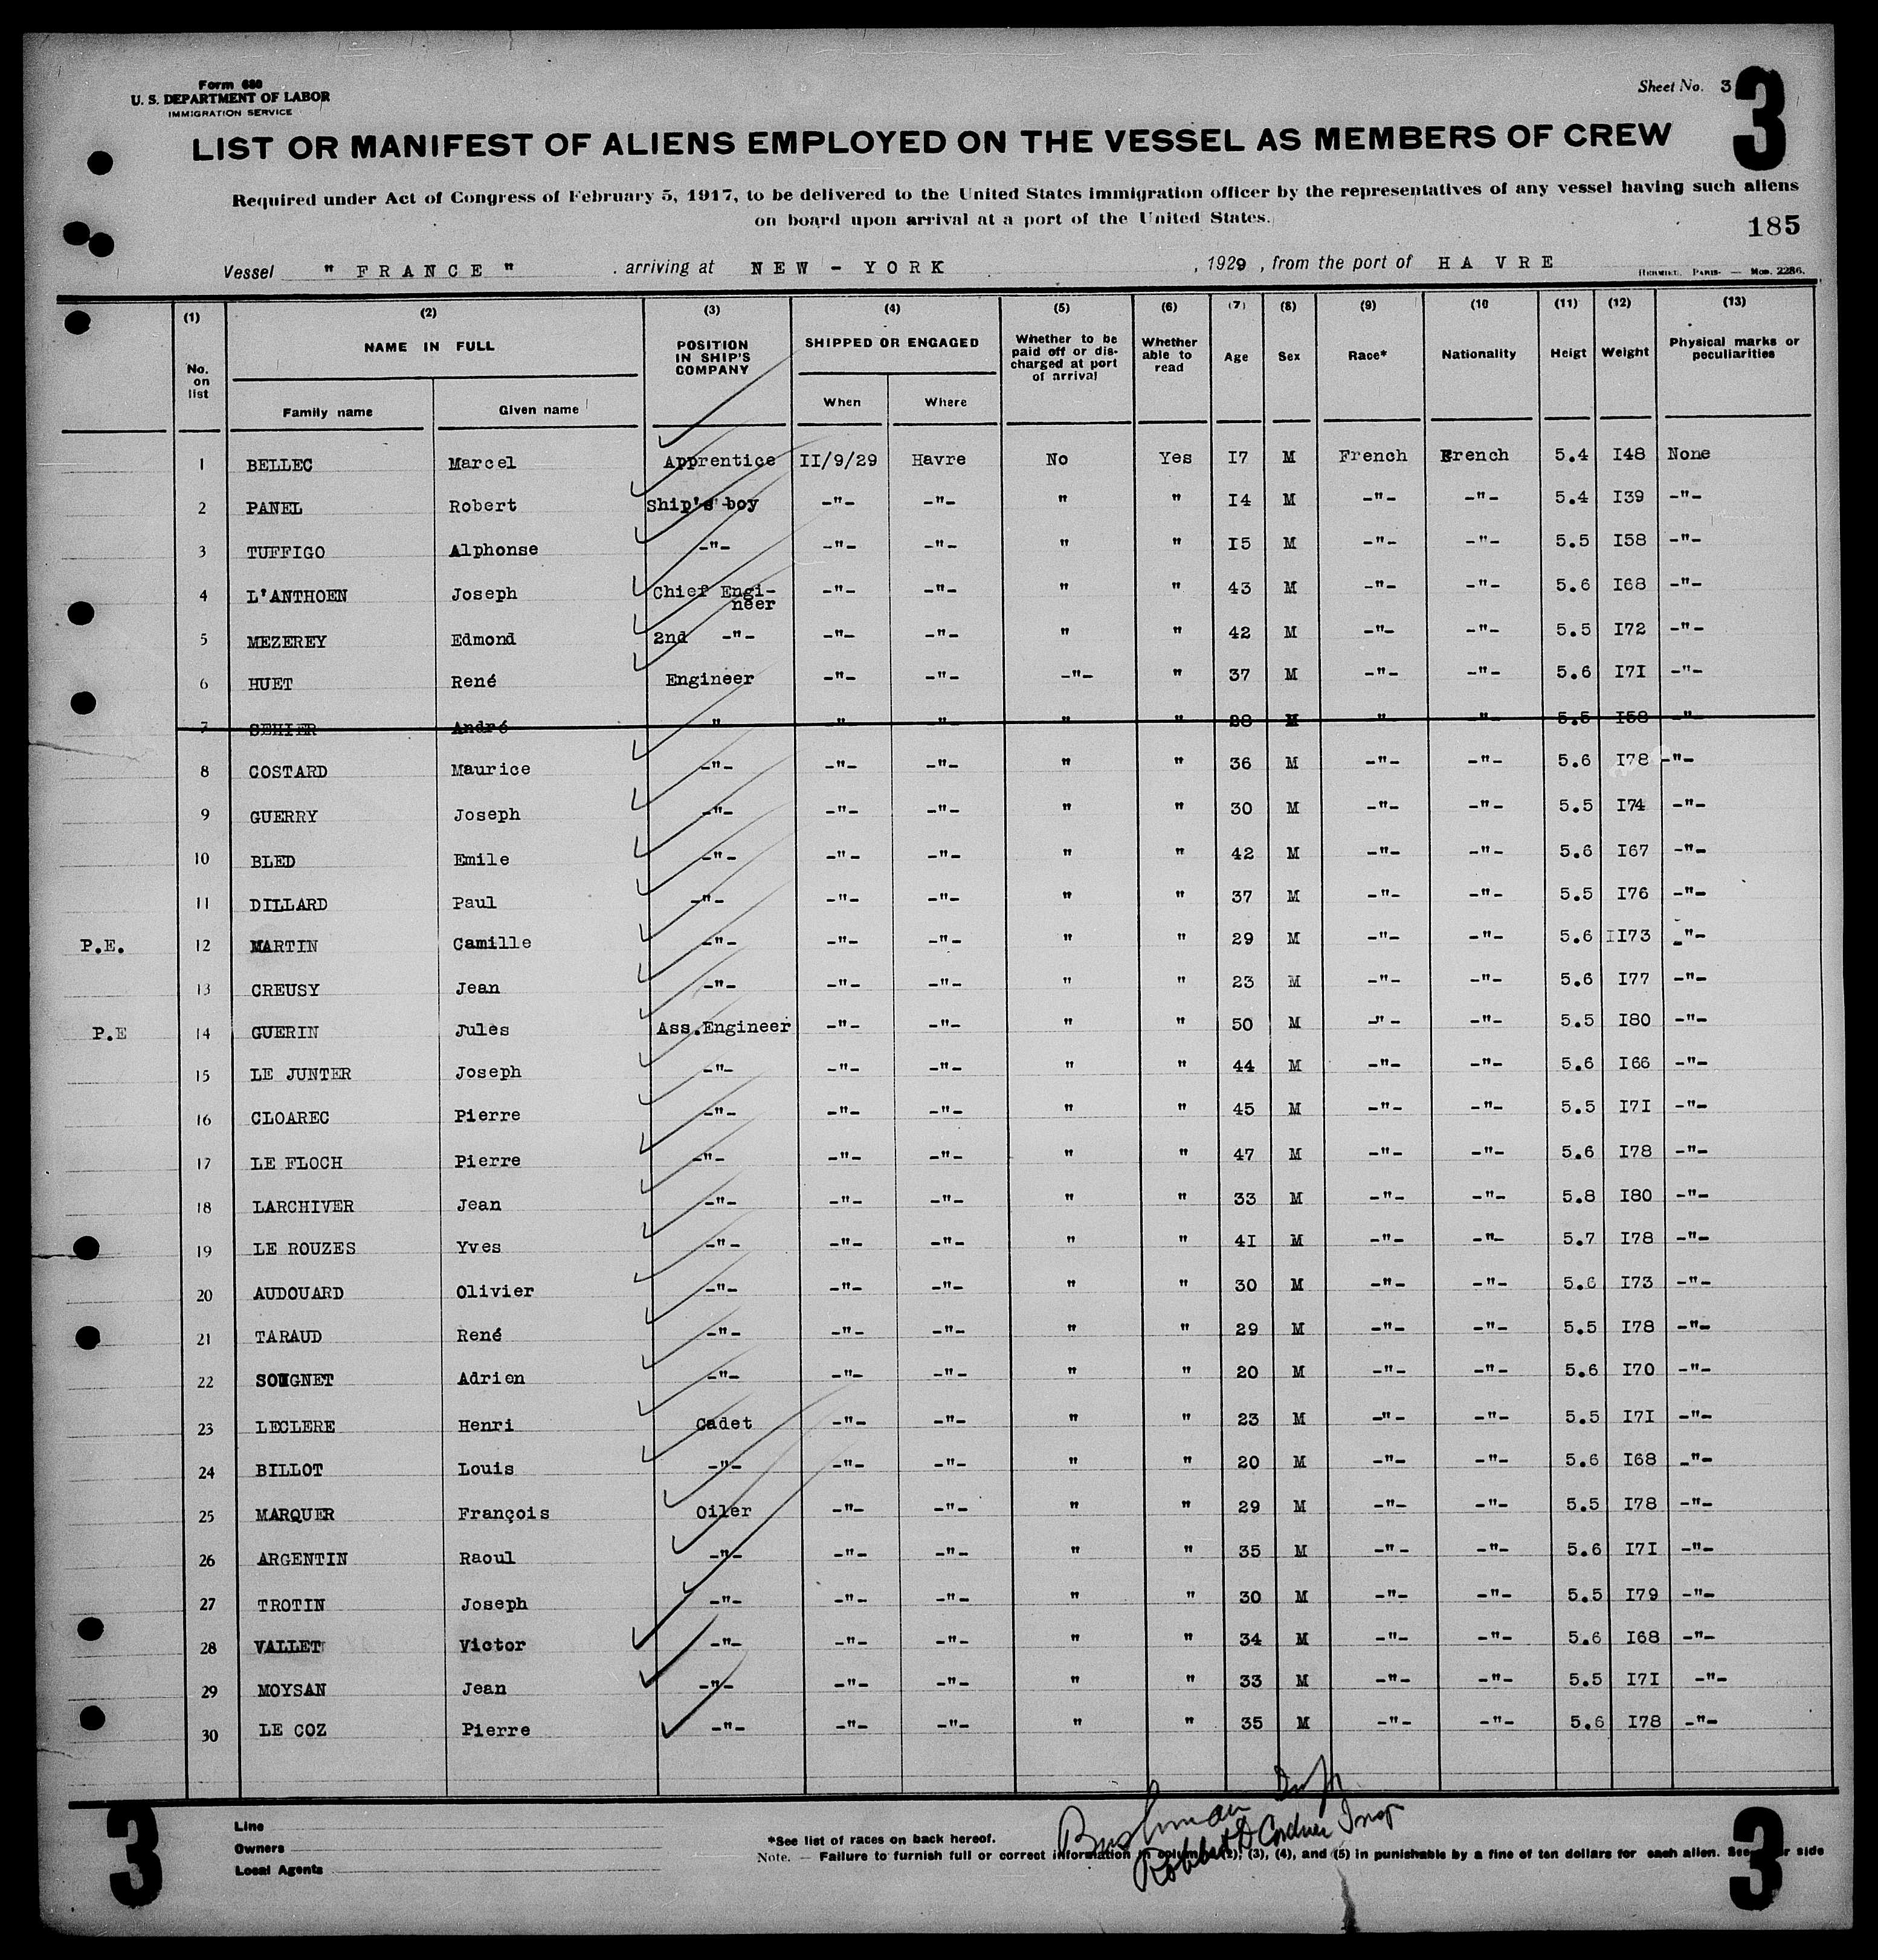 Form 680
U. S. DEPARTMENT OF LABOR
IMMIGRATION SERVICE
Sheet No. 3
3
LIST OR MANIFEST OF ALIENS EMPLOYED ON THE VESSEL AS MEMBERS OF CREW
Required under Act of Congress of February 5, 1917, to be delivered to the United States immigration officer by the representatives of any vessel having such aliens
on board upon arrival at a port of the United States.
185
Vessel " FRANCE " . arriving at NEW - YORK , 1929 , from the port of HAVRE
HERMIEU, PARIS- — Mod. 2286.
(1) (2) (3) (4) (5) (6) (7) (8) (9) (10 (11) (12) (13)
No. on list NAME IN FULL POSITION IN SHIP'S COMPANY SHIPPED OR ENGAGED Whether to be paid off or discharged at port of arrival Whether able to read Age Sex Race* Nationality Heigt Weight Physical marks or peculiarities
Family name Given name When Where
1 BELLEC Marcel Apprentice II/9/29 Havre No Yes I7 M French French 5.4 I48 None
2 PANEL Robert Ship's boy -"- -"- " " I4 M -"- -"- 5.4 I39 -"-
3 TUFFIGO Alphonse -"- -"- -"- " " I5 M -"- -"- 5.5 I58 -"-
4 L'ANTHOEN Joseph Chief Engi-neer -"- -"- " " 43 M -"- -"- 5.6 I68 -"-
5 MEZEREY Edmond 2nd -"- -"- -"- " " 42 M -"- -"- 5.5 I72 -"-
6 HUET René Engineer -"- -"- -"- " 37 M -"- -"- 5.6 I7I -"-
7 SEHIER André " " " " " 28 M " " 5.5 I58 "
8 COSTARD Maurice -"- -"- -"- " " 36 M -"- -"- 5.6 I78 -"-
9 GUERRY Joseph -"- -"- -"- " " 30 M -"- -"- 5.5 I74 -"-
10 BLED Emile -"- -"- -"- " " 42 M -"- -"- 5.6 I67 -"-
11 DILLARD Paul -"- -"- -"- " " 37 M -"- -"- 5.5 I76 -"-
P.E. 12 MARTIN Camille -"- -"- -"- " " 29 M -"- -"- 5.6 II73 -"-
13 CREUSY Jean -"- -"- -"- " " 23 M -"- -"- 5.6 I77 -"-
P.E 14 GUERIN Jules Ass.Engineer -"- -"- " " 50 M -"- -"- 5.5 I80 -"-
15 LE JUNTER Joseph -"- -"- -"- " " 44 M -"- -"- 5.6 I66 -"-
16 CLOAREC Pierre -"- -"- -"- " " 45 M -"- -"- 5.5 I7I -"-
17 LE FLOCH Pierre -"- -"- -"- " " 47 M -"- -"- 5.6 I78 -"-
18 LARCHIVER Jean -"- -"- -"- " " 33 M -"- -"- 5.8 I80 -"-
19 LE ROUZES Yves -"- -"- -"- " " 4I M -"- -"- 5.7 I78 -"-
20 AUDOUARD Olivier -"- -"- -"- " " 30 M -"- -"- 5.6 I73 -"-
21 TARAUD René -"- -"- -"- " " 29 M -"- -"- 5.5 I78 -"-
22 SOIGNET Adrien -"- -"- -"- " " 20 M -"- -"- 5.6 I70 -"-
23 LECLERE Henri Cadet -"- -"- " " 23 M -"- -"- 5.5 I7I -"-
24 BILLOT Louis -"- -"- -"- " " 20 M -"- -"- 5.6 I68 -"-
25 MARQUER François Oiler -"- -"- " " 29 M -"- -"- 5.5 I78 -"-
26 ARGENTIN Raoul -"- -"- -"- " " 35 M -"- -"- 5.6 I7I -"-
27 TROTIN Joseph -"- -"- -"- " " 30 M -"- -"- 5.5 I79 -"-
28 VALLET Victor -"- -"- -"- " " 34 M -"- -"- 5.6 I68 -"-
29 MOYSAN Jean -"- -"- -"- " " 33 M -"- -"- 5.5 I7I -"-
30 LE COZ Pierre -"- -"- -"- " " 35 M -"- -"- 5.6 I78 -"-
3
Line
Owners
Local Agents
*See list of races on back hereof.
Bushman Insp
Robert D Cordner Insp
Note. — Failure to furnish full or correct information in columns (2), (3), (4), and (5) in punishable by a fine of ten dollars for each alien. See side
3